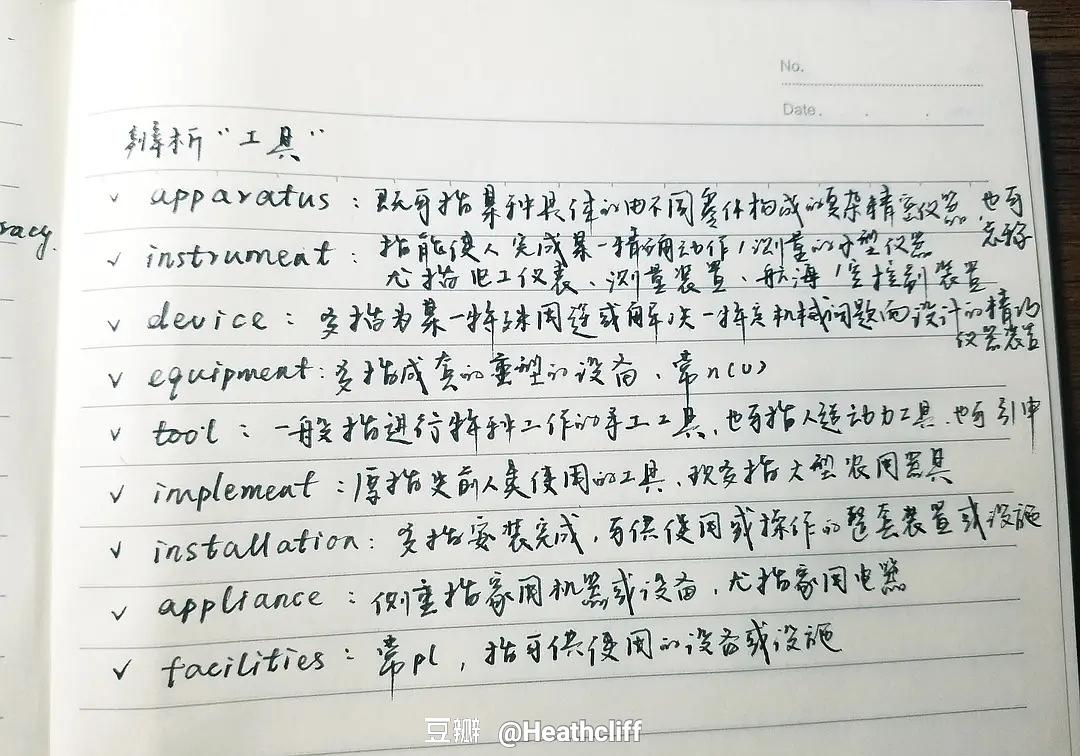 racy.
No.
Date.
辨析“工具”
✓ apparatus：既可指某种具体的由不同零件构成的复杂精密仪器，也可总称
✓ instrument：指能使人完成某一精确动作/测量的小型仪器
尤指电工仪表、测量装置、航海/空控制装置
✓ device：多指为某一特殊用途或解决一特定机械问题而设计的精巧
仪器装置
✓ equipment：多指成套的重型的设备，常n(u)
✓ tool：一般指进行特种工作的手工工具，也可指人造动力工具，也可引申
✓ implement：原指史前人类使用的工具，现多指大型农用器具
✓ installation：多指安装完成，可供使用或操作的整套装置或设施
✓ appliance：侧重指家用机器或设备，尤指家用电器
✓ facilities：常pl，指可供使用的设备或设施
豆瓣 @Heathcliff